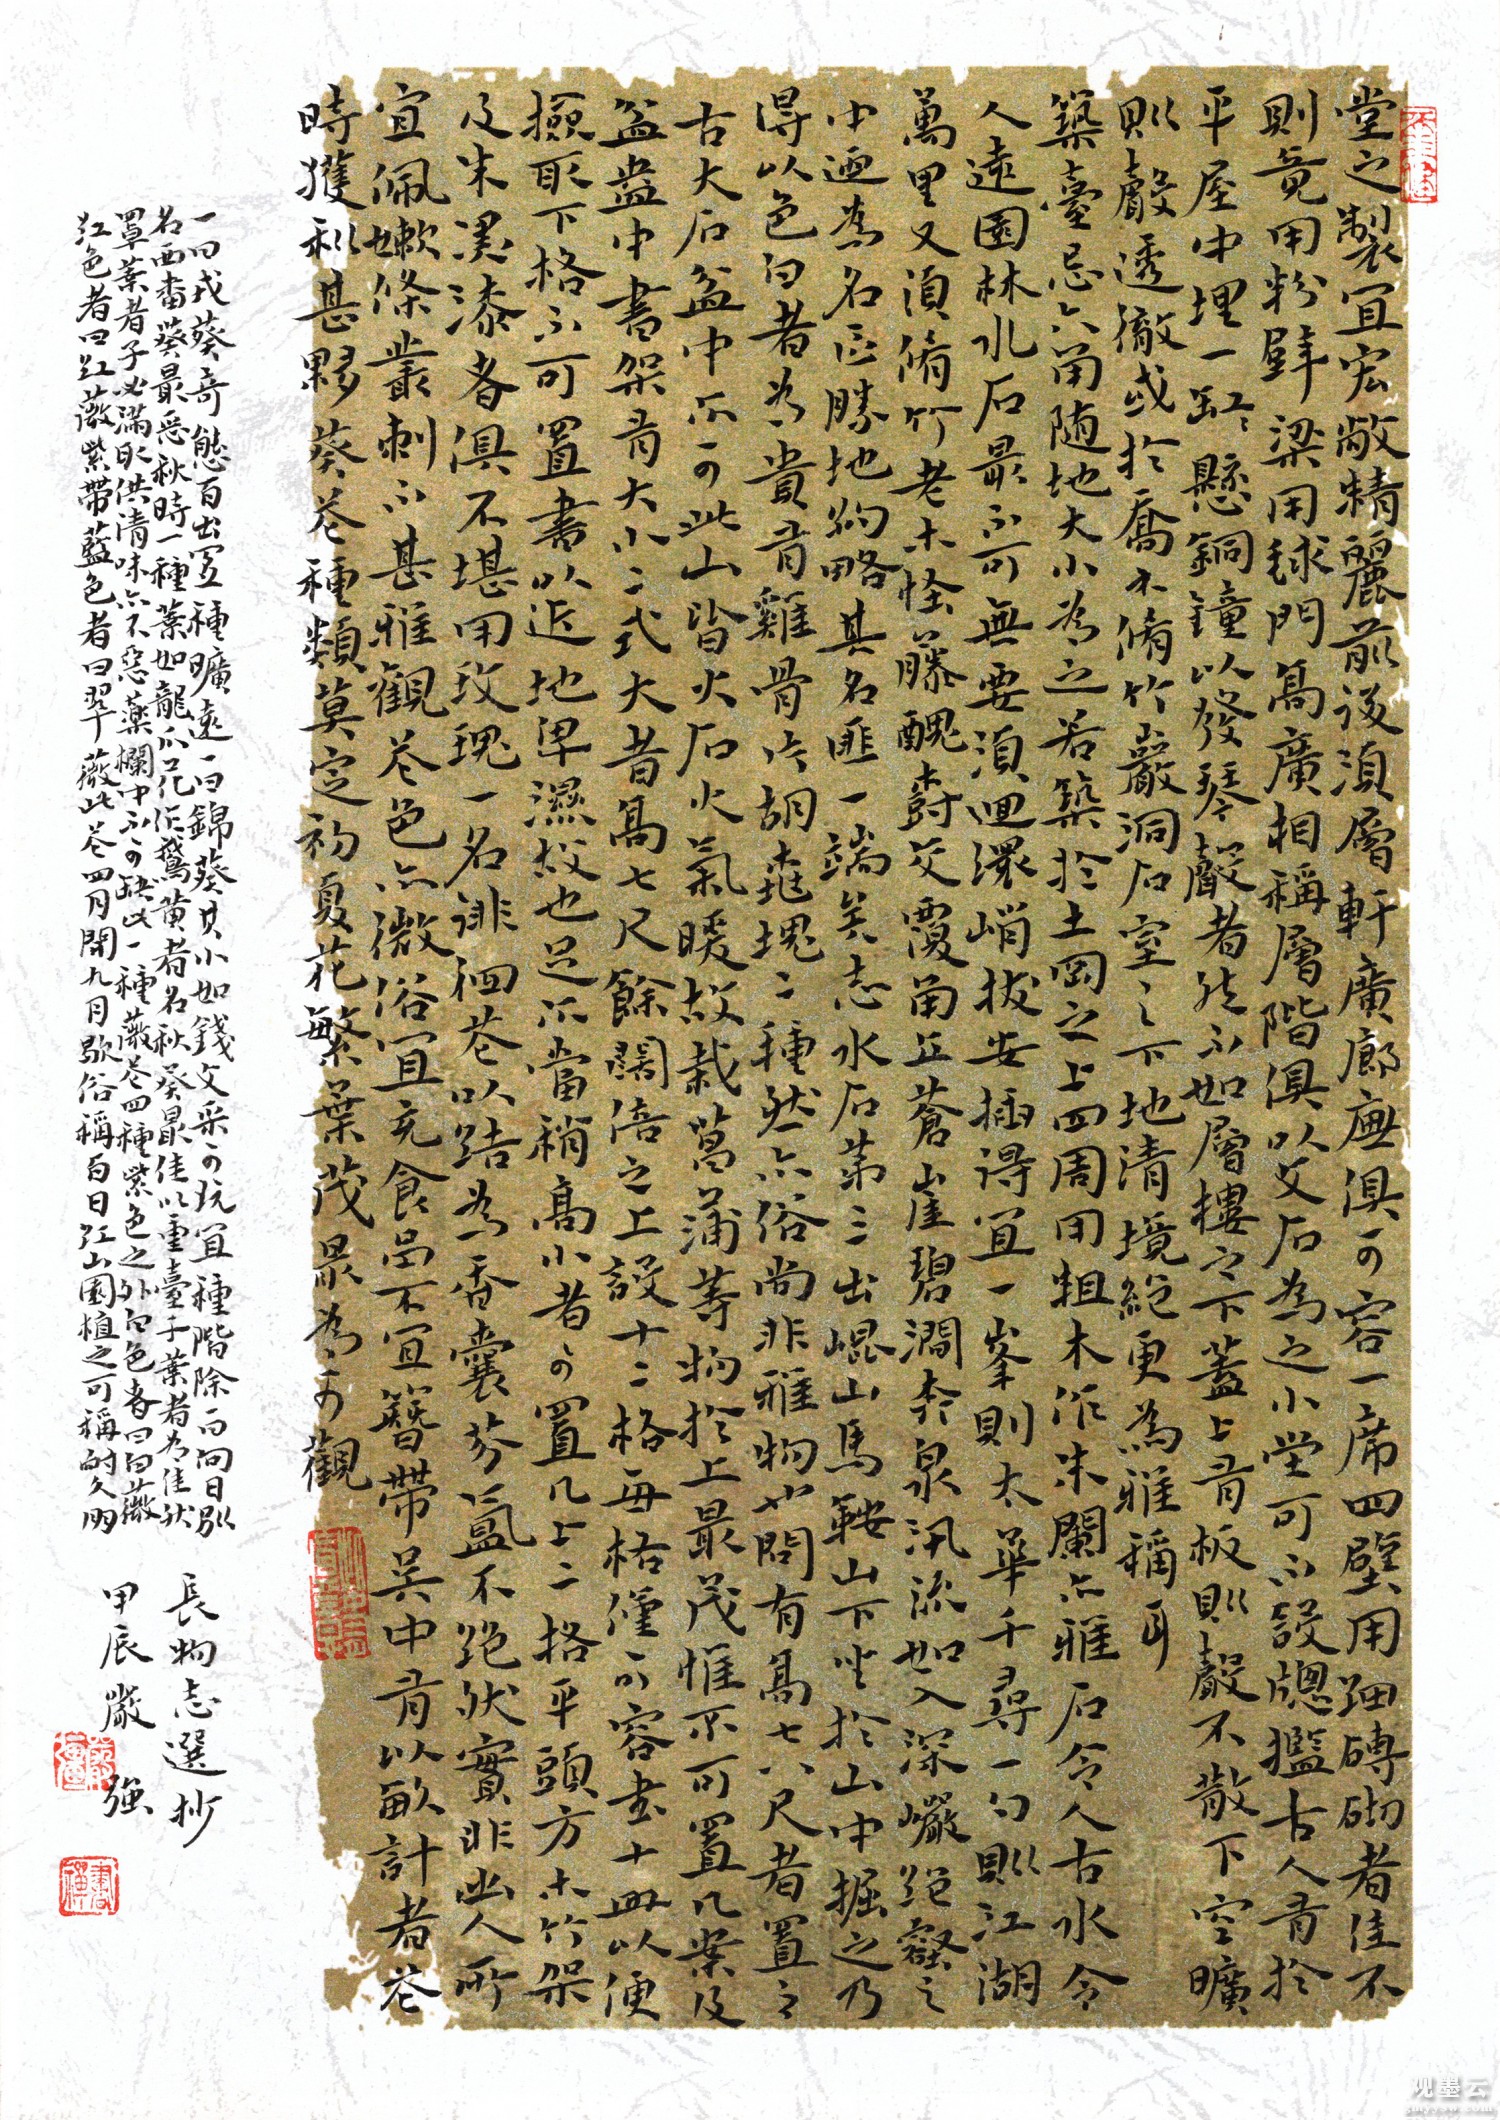 堂之製宜宏敞精麗前後須層軒廣廊廡俱可容一席四壁用細磚砌者佳不
則竟用粉壁梁用球門高廣相稱層階俱以文石為之小堂可不設牕檻古人有於
平屋中埋一缸懸銅鐘以發琴聲者然不如層樓之下蓋上有板則聲不散下空曠
則聲透徹或於喬木脩竹巖洞石室之下地清境絕更為雅稱耳
築臺忌六角隨地大小為之若築於土岡之上四周用粗木作朱闌亦雅石令人古水令
人遠園林水石最不可無要須迴環峭拔安插得宜一峯則太華千尋一勺則江湖
萬里又須脩竹老木怪藤醜樹交覆角立蒼崖碧澗奔泉汛流如入深巖絕壑之
中迺為名區勝地約略其名匪一端矣志水石第三出崐山馬鞍山下生於山中掘之乃
得以色白者為貴有雞骨片胡桃塊二種然亦俗尚非雅物也間有高七八尺者置之
古大石盆中亦可此山皆火石火氣暖故栽菖蒲等物於上最茂惟不可置几案及
盆盎中書架有大小二式大者高七尺餘闊倍之上設十二格每格僅可容書十冊以便
撿取下格不可置書以近地卑濕故也足亦當稍高小者可置几上二格平頭方木竹架
及朱黑漆者俱不堪用玫瑰一名徘徊花以結為香囊芬氳不絕然實非幽人所
宜佩嫩條叢刺不甚雅觀花色亦微俗宜充食品不宜簪帶吳中有以畝計者花
時獲利甚夥葵花種類莫定初夏花繁葉茂最為可觀
一曰戎葵奇態百出宜種曠遠一曰錦葵其小如錢文采可玩宜種階除一曰向日別
名西番葵最惡秋時一種葉如龍爪花作鵞黃者名秋葵最佳以重臺千葉者為佳狀
罌粟者子必滿取供清味亦不惡藥欄中不可缺此一種薇花四種紫色之外白色者曰白薇
紅色者曰紅薇紫帶藍色者曰翠薇此花四月開九月歇俗稱百日紅山園植之可稱耐久朋
長物志選抄
甲辰嚴強